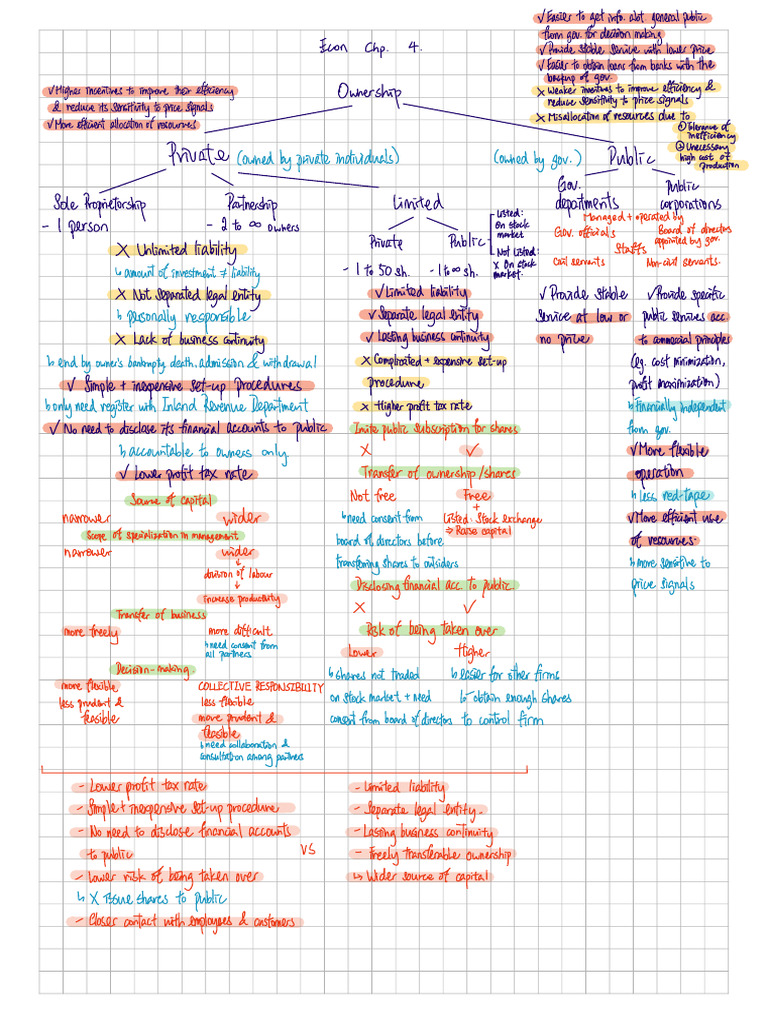 Econ Chp. 4.
✓ Easier to get info. abt general public
from gov. for decision making
✓ Provide stable service with lower price
✓ Easier to obtain loans from banks with the
backup of gov.
✗ Weaker incentives to improve efficiency &
reduce sensitivity to price signals
✗ Misallocation of resources due to
① Tolerance of
inefficiency
② Unecessary
high cost of
production
✓ Higher incentives to improve their efficiency
& reduce its sensitivity to price signals
✓ More efficient allocation of resources
Ownership
Private (owned by private individuals)
(owned by gov.) Public
Sole Proprietorship
- 1 person
Partnership
- 2 to ∞ owners
Limited
Private
- 1 to 50 sh.
Public
- 1 to ∞ sh.
Listed:
On stock
market
Not Listed:
X On stock
market.
Gov.
departments
Public
corporations
Managed + operated by
Gov. officials
Board of directors
appointed by gov.
Staffs
Civil servants
Non-civil servants.
✗ Unlimited liability
↳ amount of investment ≠ liability
✗ Not separated legal entity
↳ personally responsible
✗ Lack of business continuity
↳ end by owner's bankrupty death, admission & withdrawal
✓ Simple + inexpensive set-up procedures
↳ only need register with Inland Revenue Department
✓ No need to disclose its financial accounts to public
↳ accountable to owners only
✓ Lower profit tax rate
Source of capital
narrower wider
Scope of specialization in management
narrower wider
↓
division of labour
↓
increase productivity
Transfer of business
more freely more difficult
↳ need consent from
all partners
Decision-making
more flexible
less prudent &
feasible
COLLECTIVE RESPONSIBILITY
less flexible
more prudent &
feasible
↳ need collaboration &
consultation among partners
✓ Limited liability
✓ Separate legal entity
✓ Lasting business continuity
✗ Complicated + expensive set-up
procedure
✗ Higher profit tax rate
Invite public subscription for shares
✗ ✓
Transfer of ownership/shares
Not free
↳ need consent from
board of directors before
transferring shares to outsiders
Free
+
Listed: Stock exchange
⇒ Raise capital
Disclosing financial acc. to public
✗ ✓
Risk of being taken over
Lower Higher
↳ shares not traded
on stock market + need
consent from board of directors
↳ easier for other firms
to obtain enough shares
to control firm
✓ Provide stable
service at low or
no price
✓ Provide specific
public services acc
to commercial principles
(eg. cost minimization,
profit maximization)
↳ financially independent
from gov.
✓ More flexible
operation
↳ less red-tape
✓ More efficient use
of resources.
↳ more sensitive to
price signals
- Lower profit tax rate
- Simple + inexpensive set-up procedure
- No need to disclose financial accounts
to public
- Lower risk of being taken over
↳ X issue shares to public
- Closer contact with employees & customers
VS
- Limited liability
- Separate legal entity.
- Lasting business continuity
- Freely transferable ownership
↳ Wider source of capital